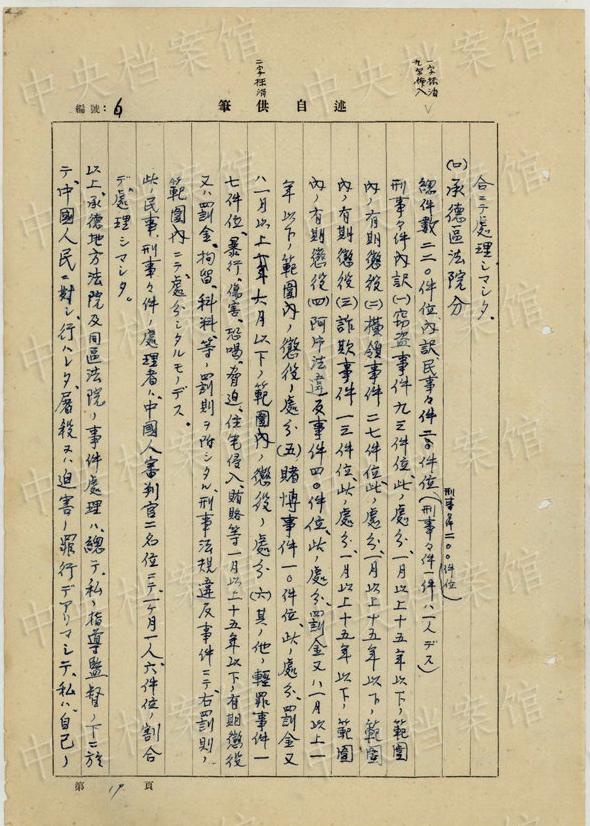 一字抹消
九字挿入
二字抹消
編號：6
筆供述自
合ニテ處理シマシタ。
(ロ)承德區法院分
總件數二二〇件位、內訳、民事々件二〇件位、刑事々件二〇〇件位(刑事々件一件ハ一人デス)
刑事々件內訳(一)窃盗事件九三件位、此ノ處分、一月以上十五年以下ノ範圍
內ノ有期懲役(二)橫領事件二七件位、此ノ處分、一月以上十五年以下ノ範圍
內ノ有期懲役(三)詐欺事件一三件位、此ノ處分、一月以上十五年以下ノ範圍
內ノ有期懲役(四)阿片法違反事件四〇件位、此ノ處分、罰金又ハ一月以上一
年以下ノ範圍內ノ懲役ノ處分(五)賭博事件一〇件位、此ノ處分、罰金又
ハ一月以上六月以下ノ範圍內ノ懲役ノ處分(六)其ノ他ノ輕罪事件一
七件位、暴行、傷害、恐喝、脅迫、住宅侵入、賄賂等一月以上十五年以下ノ有期懲役
又ハ罰金、拘留、科料、等ノ罰則ヲ附シタル刑事法規違反事件ニテ、右罰則ノ
範圍內ニテ處分シタルモノデス。
此ノ民事、刑事々件ノ處理者ハ中國人審判官二名位ニテ、一ヶ月一人六件位ノ割合
デ處理シマシタ。
以上、承德地方法院及同區法院ノ事件處理ハ、總テ、私ノ指導監督ノ下ニ於
テ、中國人民ニ對シ、行ハレタ、屠殺又ハ迫害ノ罪行デアリマシテ、私ハ、自己ノ
第 17 頁
中央档案馆